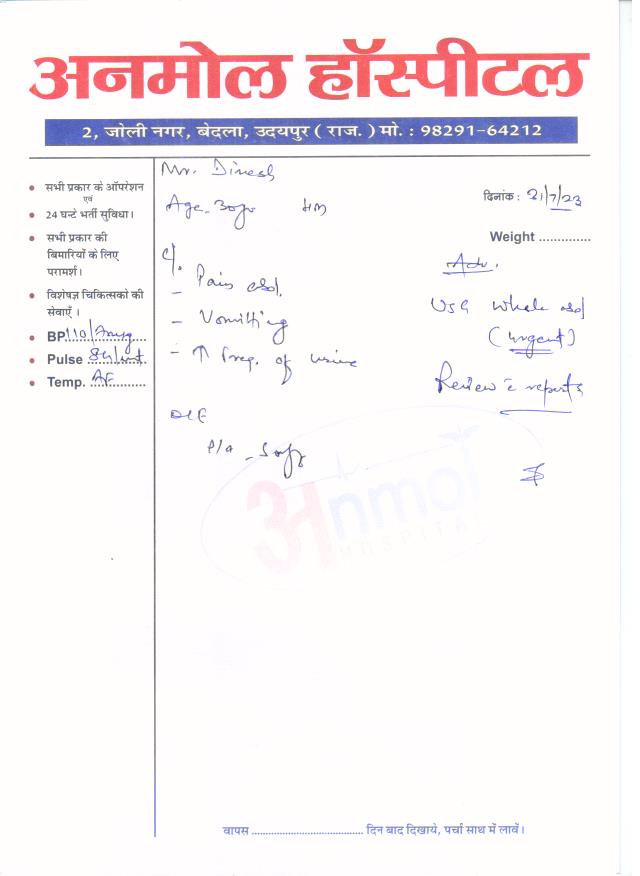 अनमोल हॉस्पीटल
2, जोली नगर, बेदला, उदयपुर ( राज. ) मो. : 98291-64212
सभी प्रकार के ऑपरेशन
एवं
24 घन्टे भर्ती सुविधा।
सभी प्रकार की
बिमारियों के लिए
परामर्श।
विशेषज्ञ चिकित्सकों की
सेवाएँ ।
BP 110/
Pulse 84/mt
Temp. AF
Mr. Dinesh
Age - 30yr
c/o
- Pain abd.
- Vomitting
- ↑ freq. of urine
O/E
P/A - Soft
दिनांक : 21/7/23
Weight ..............
Adv.
USG Whole abd
(urgent)
Review c̄ reports
अnmol
HOSPITAL
वापस ...................................... दिन बाद दिखाये, पर्चा साथ में लावें।